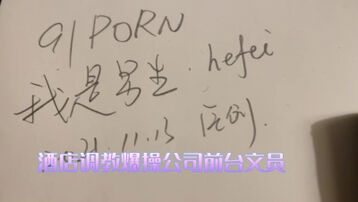 91PORN
我是男生.hefei
2021.11.13
酒店调教爆操公司前台文员